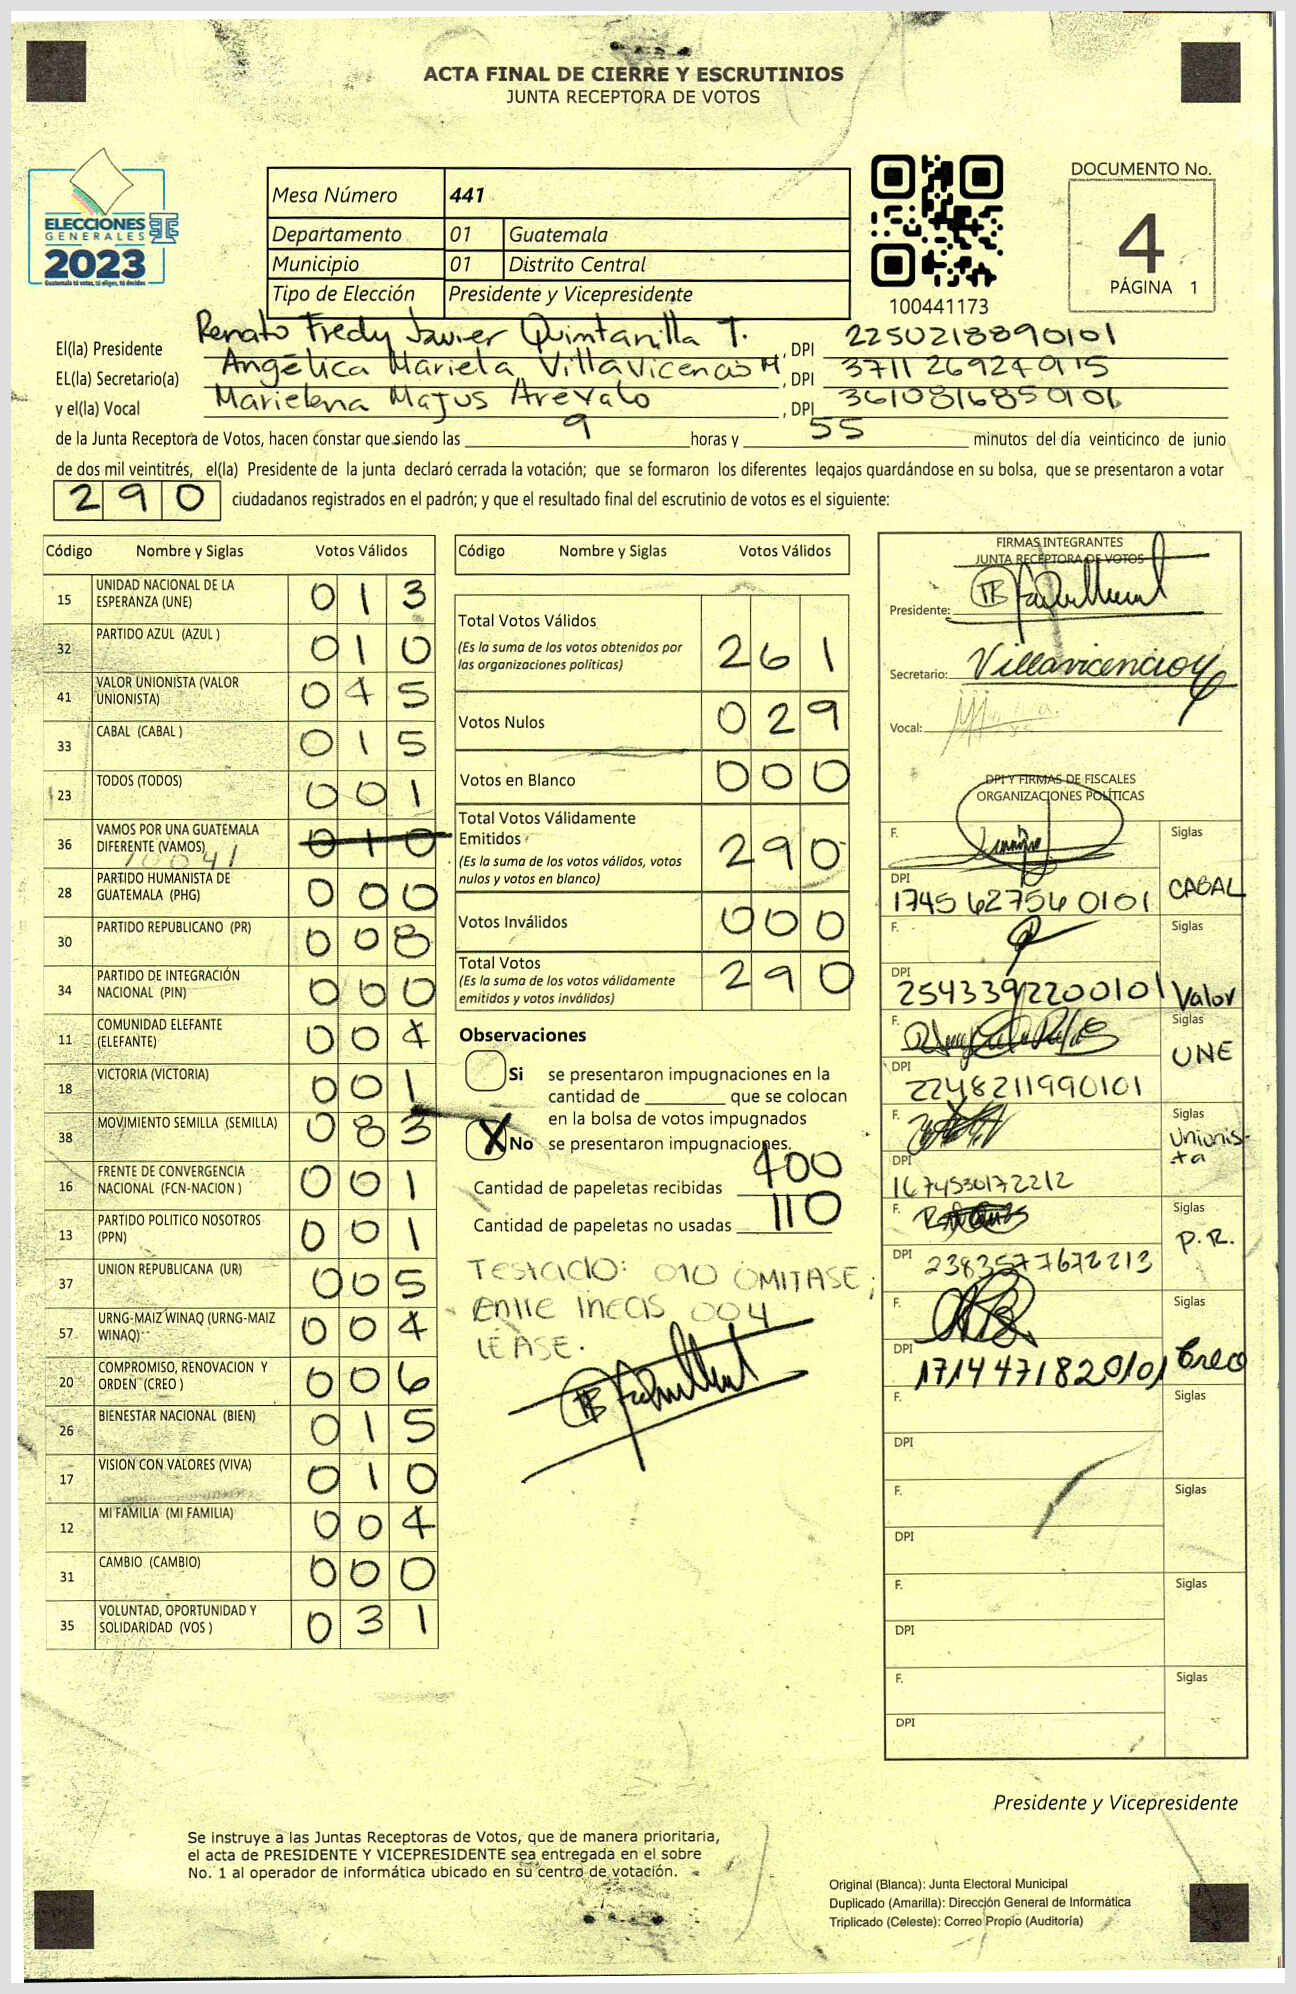 ACTA FINAL DE CIERRE Y ESCRUTINIOS
JUNTA RECEPTORA DE VOTOS
ELECCIONES
GENERALES
2023
Guatemala tú votas, tú eliges, tú decides
Mesa Número 441
Departamento 01 Guatemala
Municipio 01 Distrito Central
Tipo de Elección Presidente y Vicepresidente
100441173
DOCUMENTO No.
4
PÁGINA 1
El(la) Presidente Renato Fredy Javier Quintanilla T. , DPI 2250218890101
EL(la) Secretario(a) Angélica Mariela Villavicencio M , DPI 3711269240115
y el(la) Vocal Marielena Majus Arevalo , DPI 3610816850101
de la Junta Receptora de Votos, hacen constar que siendo las 9 horas y 55 minutos del día veinticinco de junio
de dos mil veintitrés, el(la) Presidente de la junta declaró cerrada la votación; que se formaron los diferentes legajos guardándose en su bolsa, que se presentaron a votar
290 ciudadanos registrados en el padrón; y que el resultado final del escrutinio de votos es el siguiente:
Código Nombre y Siglas Votos Válidos
15 UNIDAD NACIONAL DE LA ESPERANZA (UNE) 013
32 PARTIDO AZUL (AZUL ) 010
41 VALOR UNIONISTA (VALOR UNIONISTA) 045
33 CABAL (CABAL ) 015
23 TODOS (TODOS) 001
36 VAMOS POR UNA GUATEMALA DIFERENTE (VAMOS) 010
28 PARTIDO HUMANISTA DE GUATEMALA (PHG) 000
30 PARTIDO REPUBLICANO (PR) 008
34 PARTIDO DE INTEGRACIÓN NACIONAL (PIN) 000
11 COMUNIDAD ELEFANTE (ELEFANTE) 004
18 VICTORIA (VICTORIA) 001
38 MOVIMIENTO SEMILLA (SEMILLA) 083
16 FRENTE DE CONVERGENCIA NACIONAL (FCN-NACION ) 001
13 PARTIDO POLITICO NOSOTROS (PPN) 001
37 UNION REPUBLICANA (UR) 005
57 URNG-MAIZ WINAQ (URNG-MAIZ WINAQ) 004
20 COMPROMISO, RENOVACION Y ORDEN (CREO ) 006
26 BIENESTAR NACIONAL (BIEN) 015
17 VISION CON VALORES (VIVA) 010
12 MI FAMILIA (MI FAMILIA) 004
31 CAMBIO (CAMBIO) 000
35 VOLUNTAD, OPORTUNIDAD Y SOLIDARIDAD (VOS ) 031
Código Nombre y Siglas Votos Válidos
Total Votos Válidos 261
(Es la suma de los votos obtenidos por
las organizaciones políticas)
Votos Nulos 029
Votos en Blanco 000
Total Votos Válidamente
Emitidos 290
(Es la suma de los votos válidos, votos
nulos y votos en blanco)
Votos Inválidos 000
Total Votos 290
(Es la suma de los votos válidamente
emitidos y votos inválidos)
Observaciones
Si se presentaron impugnaciones en la
cantidad de que se colocan
en la bolsa de votos impugnados
X No se presentaron impugnaciones.
Cantidad de papeletas recibidas 400
Cantidad de papeletas no usadas 110
Testado: 010 OMITASE;
Entre lineas 004
LEASE.
FIRMAS INTEGRANTES
JUNTA RECEPTORA DE VOTOS
Presidente:
Secretario: Villavicencio
Vocal:
DPI Y FIRMAS DE FISCALES
ORGANIZACIONES POLÍTICAS
F. Siglas
DPI 1745627560101 CABAL
F. Siglas
DPI 2543392200101 Valor
F. Siglas
DPI 2248211990101 UNE
F. Siglas
DPI 1674530172212 Unionista
F. Siglas
DPI 2383577672213 P.R.
F. Siglas
DPI 1714471820101 Creo
F. Siglas
DPI
F. Siglas
DPI
F. Siglas
DPI
F. Siglas
DPI
Presidente y Vicepresidente
Se instruye a las Juntas Receptoras de Votos, que de manera prioritaria,
el acta de PRESIDENTE Y VICEPRESIDENTE sea entregada en el sobre
No. 1 al operador de informática ubicado en su centro de votación.
Original (Blanca): Junta Electoral Municipal
Duplicado (Amarilla): Dirección General de Informática
Triplicado (Celeste): Correo Propio (Auditoría)